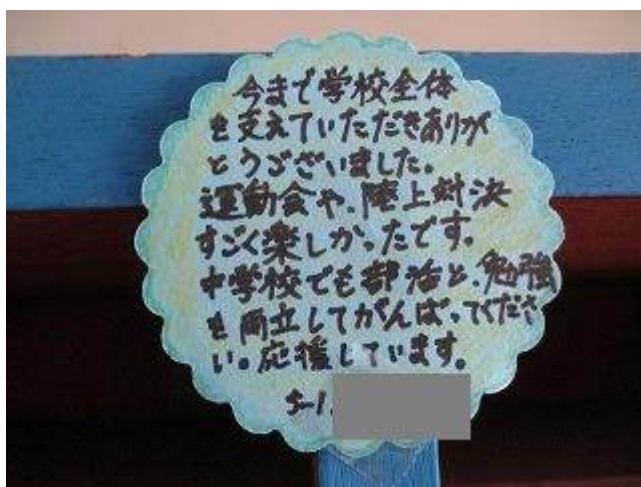 今まで学校全体
を支えていただきありが
とうございました。
運動会や、陸上対決
すごく楽しかったです。
中学校でも部活と、勉強
を両立してがんばってくださ
い。応援しています。
5-1.